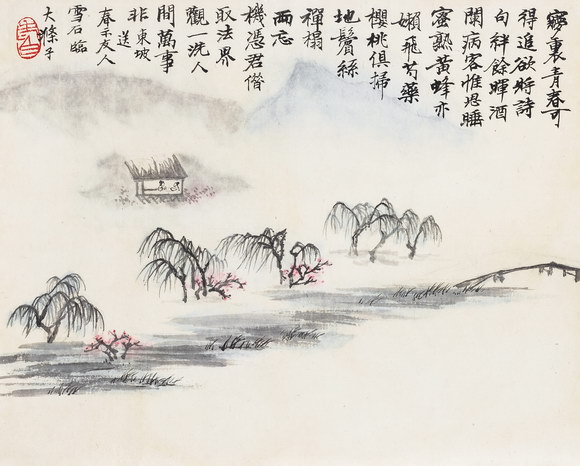 夢裏青春可
得追欲將詩
句絆餘暉酒
闌病客惟思睡
蜜熟黃蜂亦
懶飛芍藥
櫻桃俱掃
地鬢絲
禪榻
兩忘
機憑君借
取法界
觀一洗人
間萬事
非東坡送
春 友人
雪石臨
大滌子